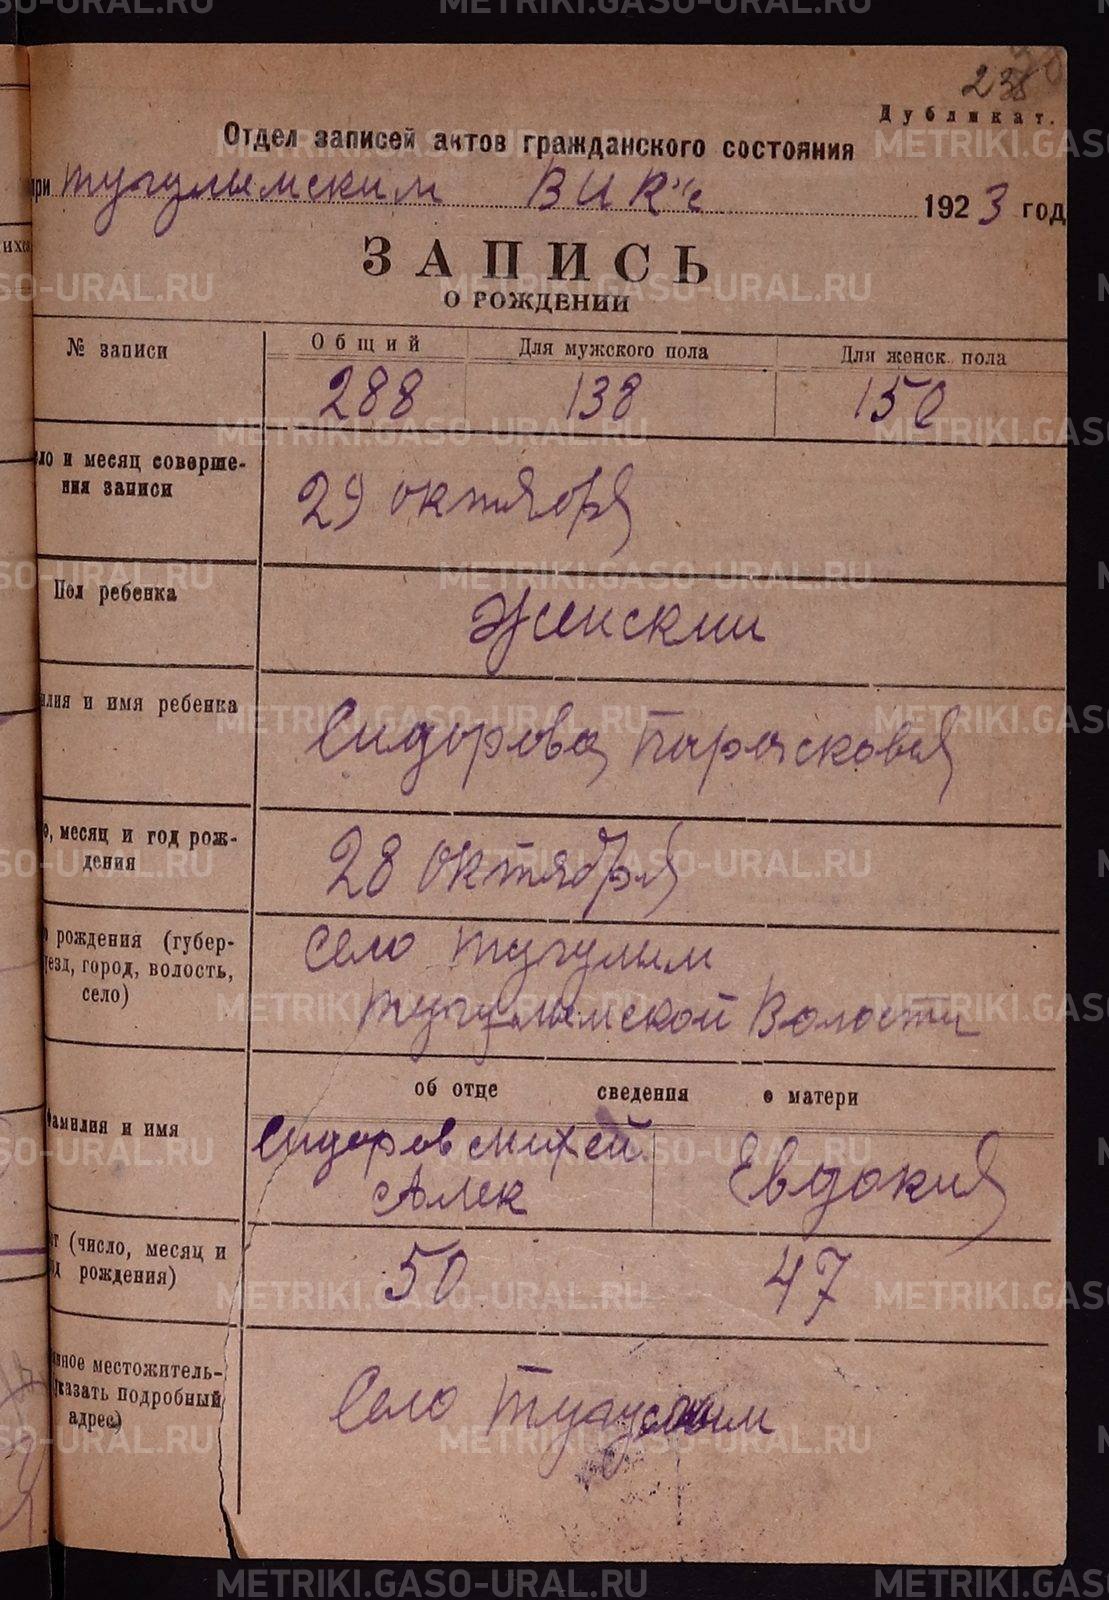 238
Дубликат.
Отдел записей актов гражданского состояния
при Тугулымским ВИК'е 1923 год
ЗАПИСЬ
О РОЖДЕНИИ
№ записи
Общий
Для мужского пола
Для женск. пола
288 138 150
ло и месяц соверше-
ния записи
29 октября
Пол ребенка
Женский
илия и имя ребенка
Сидорова Парасковья
о, месяц и год рож-
дения
28 октября
о рождения (губер-
уезд, город, волость,
село)
Село Тугулым
Тугулымской Волости
об отце сведения о матери
фамилия и имя
Сидоров Михей
Алек
Евдокия
ет (число, месяц и
од рождения)
50 47
янное местожитель-
указать подробный
адрес)
Село Тугулым
METRIKI.GASO-URAL.RU